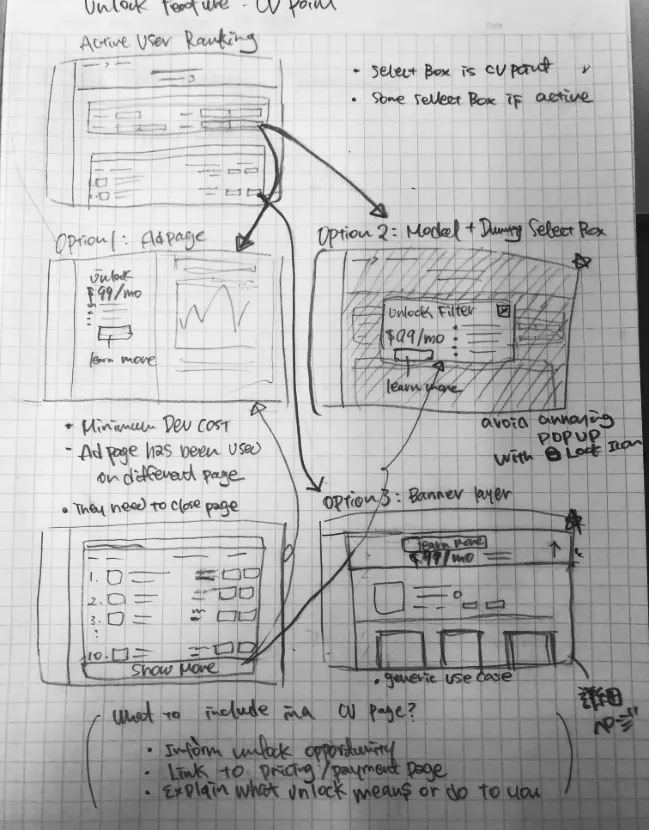 Unlock Feature · CV point
Active User Ranking
· Select Box is CV point
· Some sellect Box if active
Option 1: Ad page
Unlock
$99/mo
learn more
Option 2: Model + Dummy Select Box
Unlock Filter
$99/mo
learn more
avoid annoying
POPUP
with Lock Icon
· Minimum Dev cost
- Ad page has been used
on different page
· They need to close page
1.
2.
3.
10.
Show More
Option 3: Banner layer
learn more
$99/mo
· generic use case
What to include in a CV page?
· Inform unlock opportunity
· Link to pricing/payment page
· Explain what unlock means or do to you